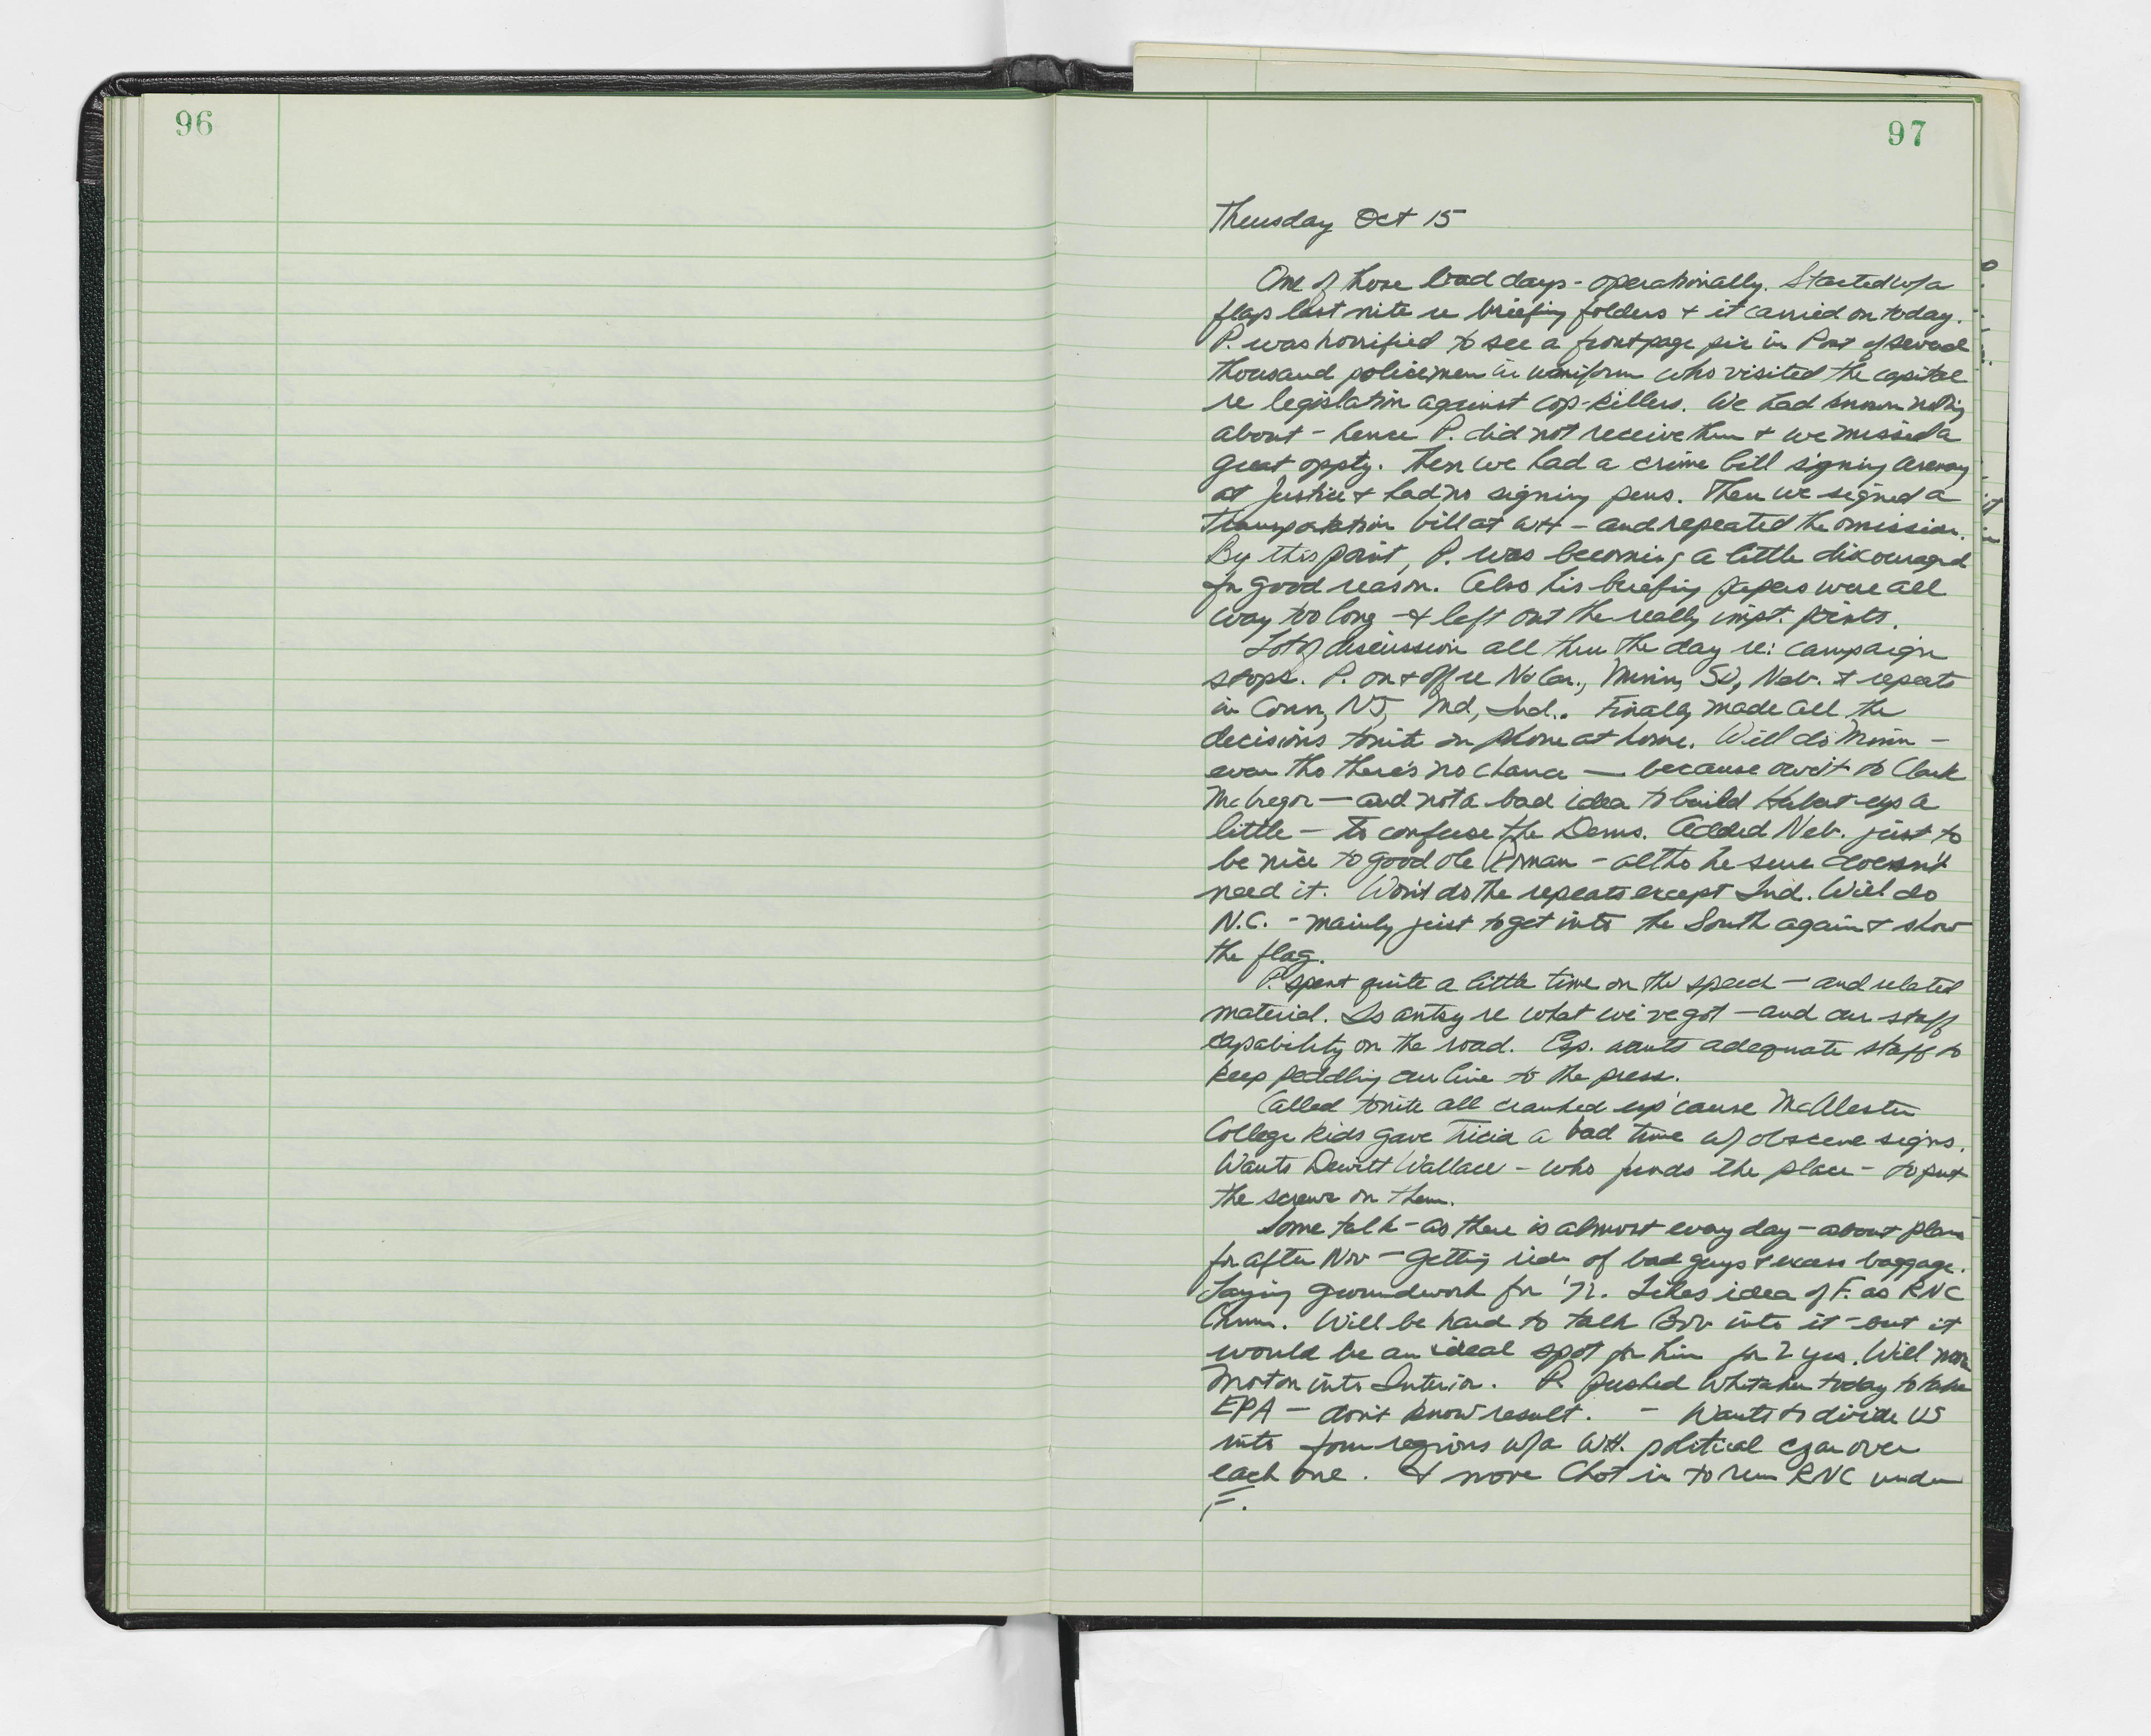 96
97
Thursday Oct 15
One of those bad days - operationally. Started w/a
flap last nite re briefing folders + it carried on today.
P. was horrified to see a front page pic in Post of several
thousand policemen in uniform who visited the capitol
re legislation against cop-killers. We had known nothing
about - hence P. did not receive them + we missed a
great oppty. Then we had a crime bill signing ceremony
at Justice + had no signing pens. Then we signed a
Transportation bill at WH - and repeated the omission.
By this point, P. was becoming a little discouraged
for good reason. Also his briefing papers were all
way too long - + left out the really impt. points.
Lot of discussion all thru the day re: campaign
stops. P. on + off re No Car., Minn, SD, Neb. + repeats
in Conn, NJ, Md, Ind.. Finally made all the
decisions tonite on phone at home. Will do Minn -
even tho there's no chance — because owe it to Clark
McGregor — and not a bad idea to build Hubert up a
little - to confuse the Dems. Added Neb. just to
be nice to good ole Roman - altho he sure doesn't
need it. Won't do the repeats except Ind. Will do
N.C. - mainly just to get into the South again + show
the flag.
P. spent quite a little time on the speech — and related
material. Is antsy re what we've got — and our staff
capability on the road. Esp. wants adequate staff to
keep peddling our line to the press.
Called tonite all cranked up 'cause McAlester
College kids gave Tricia a bad time w/ obscene signs.
Wants Dewitt Wallace - who funds the place - to put
the screws on them.
Some talk - as there is almost every day - about plans
for after Nov - Getting rid of bad guys + excess baggage.
Laying groundwork for '72. Likes idea of F. as RNC
Chmn. Will be hard to talk Bob into it - but it
would be an ideal spot for him for 2 yrs. Will move
Morton into Interior. P. pushed Whitaker today to take
EPA - don't know result. - Wants to divide US
into four regions w/a WH. political czar over
each one. + move Chot in to run RNC under
F.